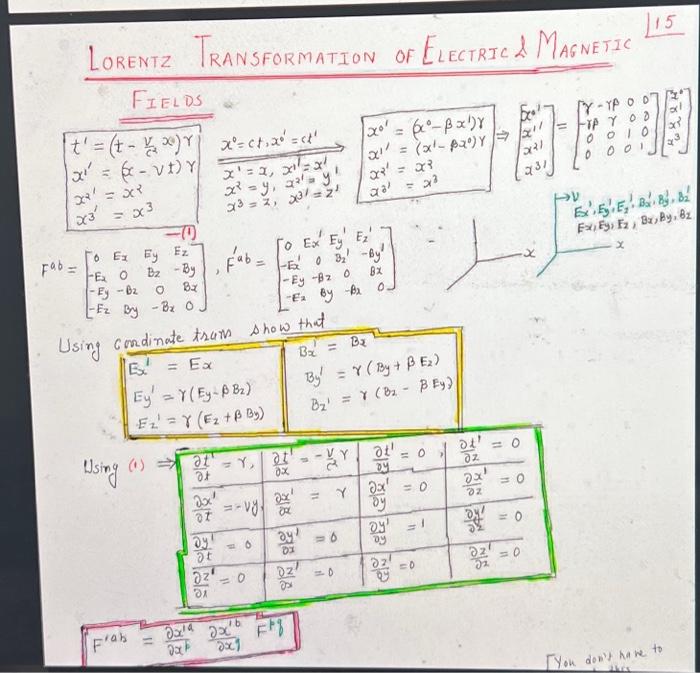 15
LORENTZ TRANSFORMATION OF ELECTRIC & MAGNETIC
FIELDS
t' = (t - v/c² x)γ
x' = (x - vt)γ
x²' = x²
x³' = x³
x⁰=ct, x⁰'=ct'
x¹=x, x¹'=x'
x²=y, x²'=y'
x³=z, x³'=z'
x⁰' = (x⁰-βx¹)γ
x¹' = (x¹-βx⁰)γ
x²' = x²
x³' = x³
⇒ [x⁰' x¹' x²' x³'] = [γ -γβ 0 0 -γβ γ 0 0 0 0 1 0 0 0 0 1] [x⁰ x¹ x² x³]
—(1)
→v
Ex', Ey', Ez', Bx', By', Bz'
Ex, Ey, Ez, Bx, By, Bz
x
x
F^ab = [0 Ex Ey Ez
-Ex 0 Bz -By
-Ey -Bz 0 Bx
-Ez By -Bx 0]
, F'^ab = [0 Ex' Ey' Ez'
-Ex' 0 Bz' -By'
-Ey -Bz 0 Bx
-Ez By -Bx 0]
Using cordinate trans show that
Ex' = Ex
Ey' = γ(Ey-βBz)
Ez' = γ(Ez+βBy)
Bx' = Bx
By' = γ(By+βEz)
Bz' = γ(Bz - βEy)
Using (1) ⇒
∂t'/∂t = γ, ∂t'/∂x = -v/c² γ ∂t'/∂y = 0, ∂t'/∂z = 0
∂x'/∂t = -vγ ∂x'/∂x = γ ∂x'/∂y = 0 ∂x'/∂z = 0
∂y'/∂t = 0 ∂y'/∂x = 0 ∂y'/∂y = 1 ∂y'/∂z = 0
∂z'/∂t = 0 ∂z'/∂x = 0 ∂z'/∂y = 0 ∂z'/∂z = 0
F'^ab = ∂x'^a/∂x^p ∂x'^b/∂x^q F^pq
[You don't have to